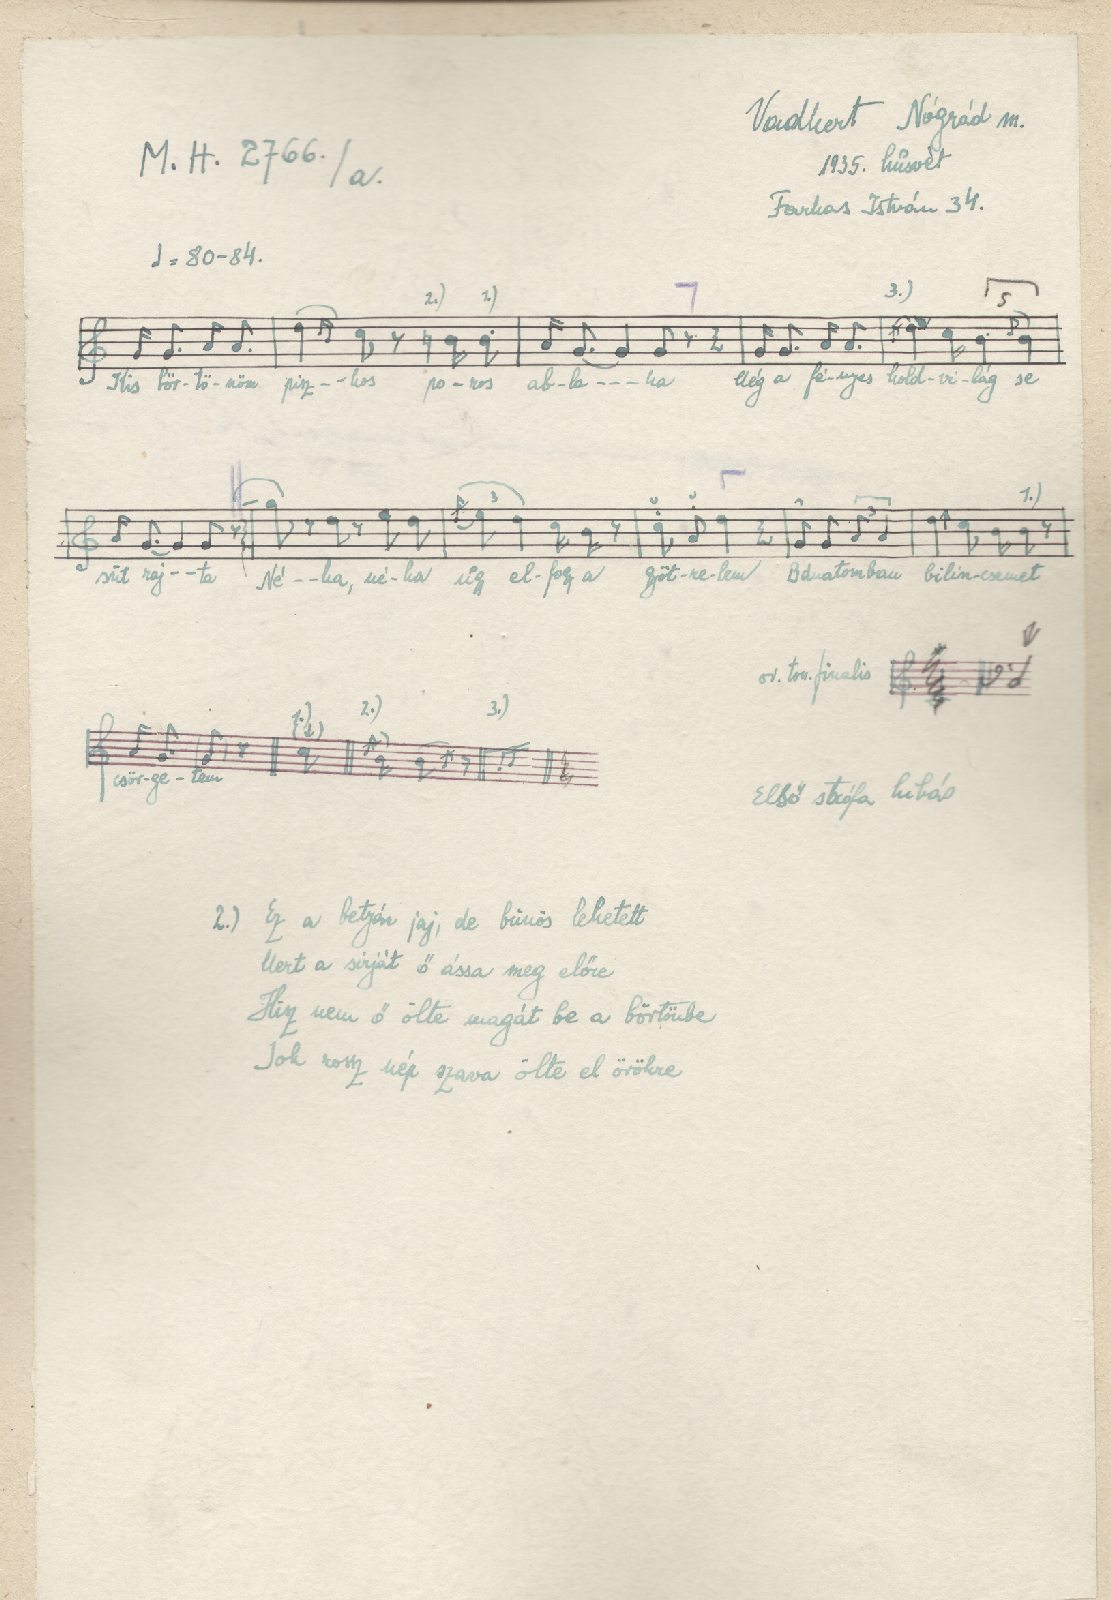 Vadkert Nógrád m.
M. H. 2766./a.
1935. húsvét
Farkas István 34.
♩ = 80-84.
2.) 1.) 3.) 5
Kis bör-tö-nöm pisz--kos po-ros ab-la---ka Még a fé-nyes hold-vi-lág se
3 3 1.)
süt raj--ta Né--ha, né-ha úgy el-fog a gyöt-re-lem Bánatomban bilin-csemet
or. ton. finalis
1.) 2.) 3.)
csör-ge-tem
Első strófa hibás
2.) Ez a betyár jaj, de bünös lehetett
Mert a sirját ő ássa meg előre
Hisz nem ő ölte magát be a börtönbe
Sok rossz nép szava ölte el örökre